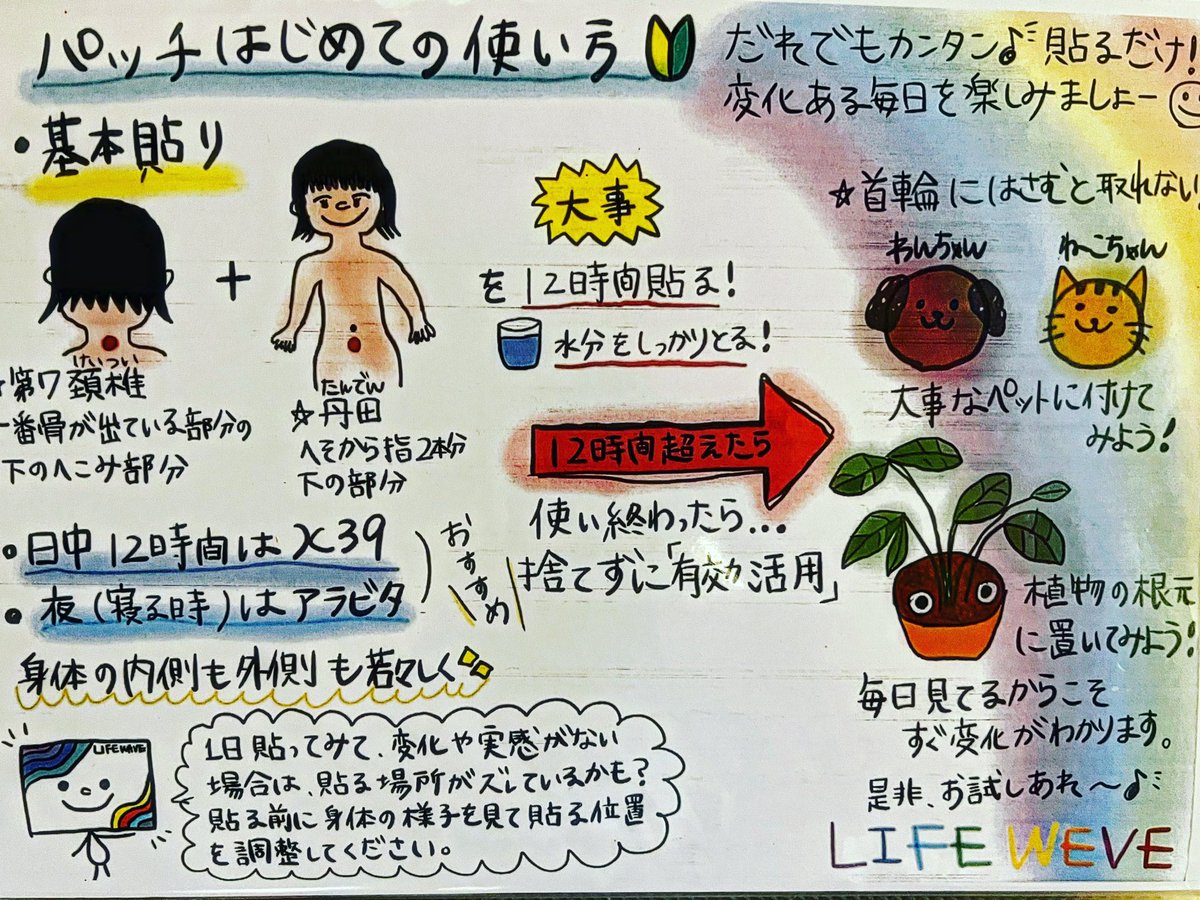 パッチはじめての使い方
だれでもカンタン♪貼るだけ!
変化ある毎日を楽しみましょー
・基本貼り
+
けいつい
☆第7頚椎
一番骨が出ている部分の
下のへこみ部分
たんでん
☆丹田
へそから指2本分
下の部分
大事
を12時間貼る!
水分をしっかりとる!
12時間超えたら
使い終わったら...
捨てずに「有効活用」
・日中12時間はX39
・夜(寝る時)はアラビタ
おすすめ
身体の内側も外側も若々しく
LIFEWAVE
1日貼ってみて、変化や実感がない
場合は、貼る場所がズレているかも?
貼る前に身体の様子を見て貼る位置
を調整してください。
☆首輪にはさむと取れない
わんちゃん
ねこちゃん
大事なペットに付けて
みよう!
植物の根元
に置いてみよう!
毎日見てるからこそ
すぐ変化がわかります。
是非、お試しあれ〜♪
LIFE WEVE